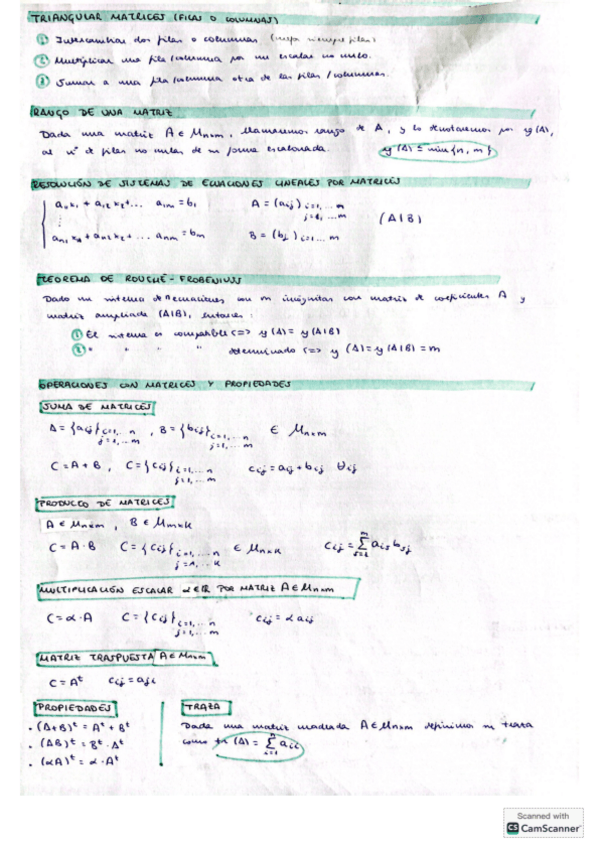 TRIANGULAR MATRICES (FILAS O COLUMNAS)
① Intercambiar dos filas o columnas (mejor siempre filas)
② Multiplicar una fila/columna por un escalar no nulo.
③ Sumar a una fila/columna otra de las filas/columnas.
RANGO DE UNA MATRIZ
Dada una matriz A ∈ Mnxm, llamaremos rango de A, y lo denotaremos por rg(A),
al nº de filas no nulas de su forma escalonada. rg(A) ≤ min{n, m}
RESOLUCIÓN DE SISTEMAS DE ECUACIONES LINEALES POR MATRICES
a11x1 + a12x2 + ... a1m = b1 A = (aij) i=1,...m
⋮ j=1,...m (A|B)
an1x1 + an2x2 + ... anm = bm B = (bj) i=1...m
TEOREMA DE ROUCHÉ-FROBENIUS
Dado un sistema de n ecuaciones con m incógnitas con matriz de coeficientes A y
matriz ampliada (A|B), entonces:
① El sistema es compatible <=> rg(A) = rg(A|B)
② " " " " determinado <=> rg(A) = rg(A|B) = m
OPERACIONES CON MATRICES Y PROPIEDADES
SUMA DE MATRICES
A = {aij} i=1,...n , B = {bij} i=1,...n ∈ Mnxm
j=1,...m j=1,...m
C = A + B , C = {cij} i=1,...n cij = aij + bij ∀ij
j=1,...m
PRODUCTO DE MATRICES
A ∈ Mnxm , B ∈ Mmxk
C = A · B C = {cij} i=1,...n ∈ Mnxk cij = Σ(s=1 → m) ais bsj
j=1,...k
MULTIPLICACIÓN ESCALAR α∈ℝ POR MATRIZ A∈Mnxm
C = α · A C = {cij} i=1,...n cij = α aij
j=1,...m
MATRIZ TRASPUESTA A∈Mnxm
C = Aᵗ cij = aji
PROPIEDADES TRAZA
· (A+B)ᵗ = Aᵗ + Bᵗ Dada una matriz cuadrada A∈Mnxm definimos su traza
· (AB)ᵗ = Bᵗ · Aᵗ como tr (A) = Σ(i=1 → n) aii
· (αA)ᵗ = α · Aᵗ
Scanned with
CS CamScanner